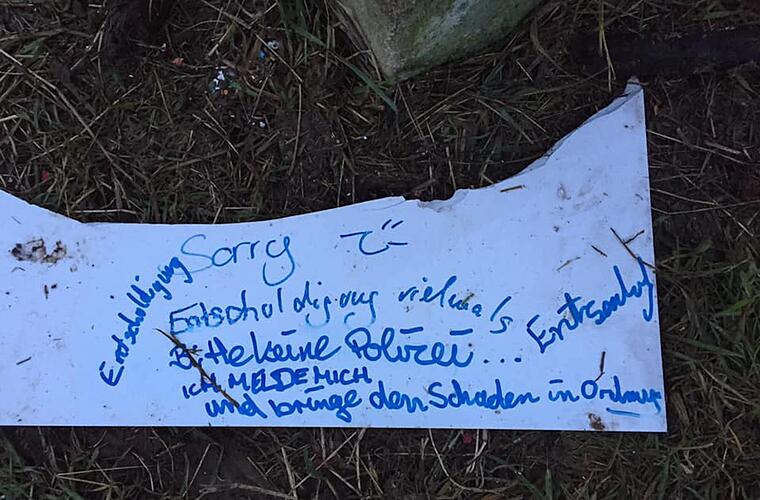 Sorry
Entscholdigung
Entscholdigung vielmals
Bitte keine Polizei...
ICH MELDE MICH
und bringe den Schaden in Ordnung